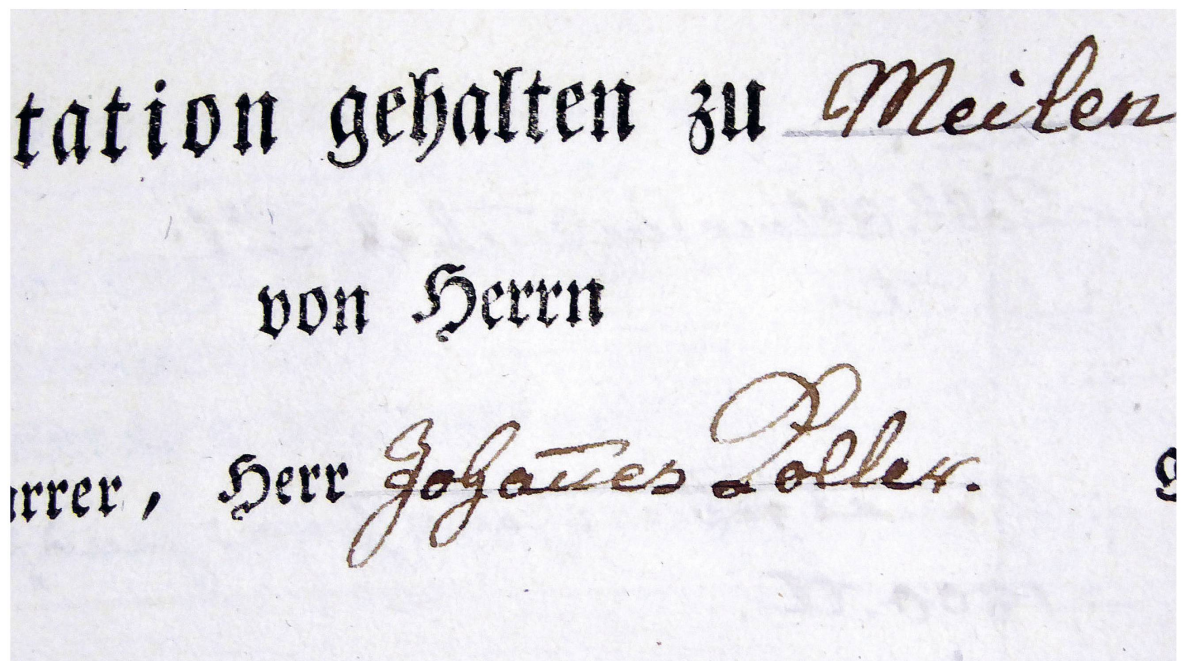 tation gehalten zu Meilen
von Herrn
arrer, Herr Johannes Zoller.